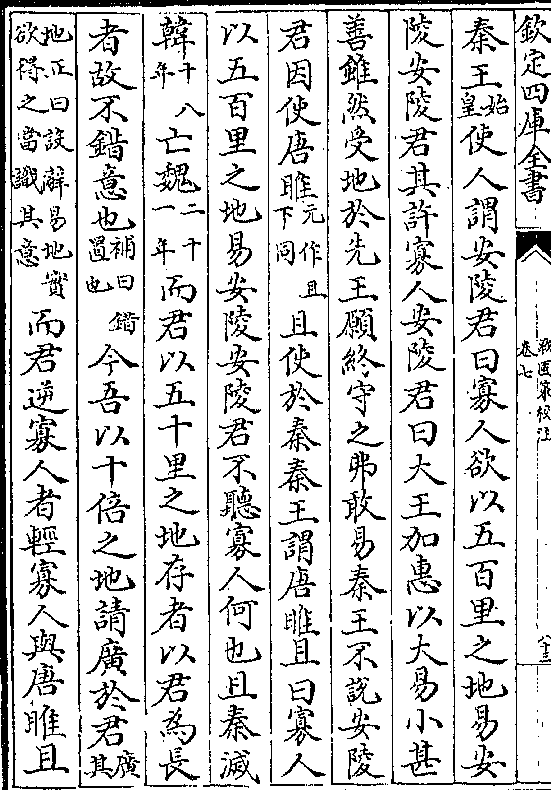 欽定四庫全書
戰國策校注
卷七
秦王始皇使人謂安陵君曰寡人欲以五百里之地易安
陵安陵君其許寡人安陵君曰大王加惠以大易小甚
善雖然受地於先王願終守之弗敢易秦王不說安陵
君因使唐雎元作且下同且使於秦秦王謂唐雎且曰寡人
以五百里之地易安陵安陵君不聽寡人何也且秦滅
韓十八年亡魏二十一年而君以五十里之地存者以君為長
者故不錯意也補曰錯置也今吾以十倍之地請廣於君廣其
地正曰設辭易地實欲得之當識其意而君逆寡人者輕寡人與唐雎且